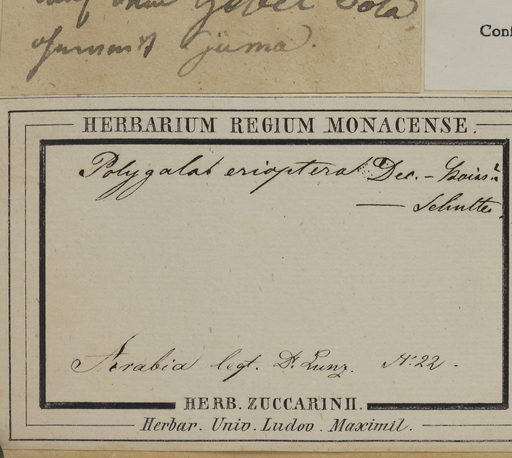 Gebel Sola
Guma.
Conf
HERBARIUM REGIUM MONACENSE.
Polygala erioptera Dec. – Boiss!
— Schultes.
Arabia legt. Dr. Lunz. No. 22.
HERB. ZUCCARINII.
Herbar. Univ. Ludov. Maximil.